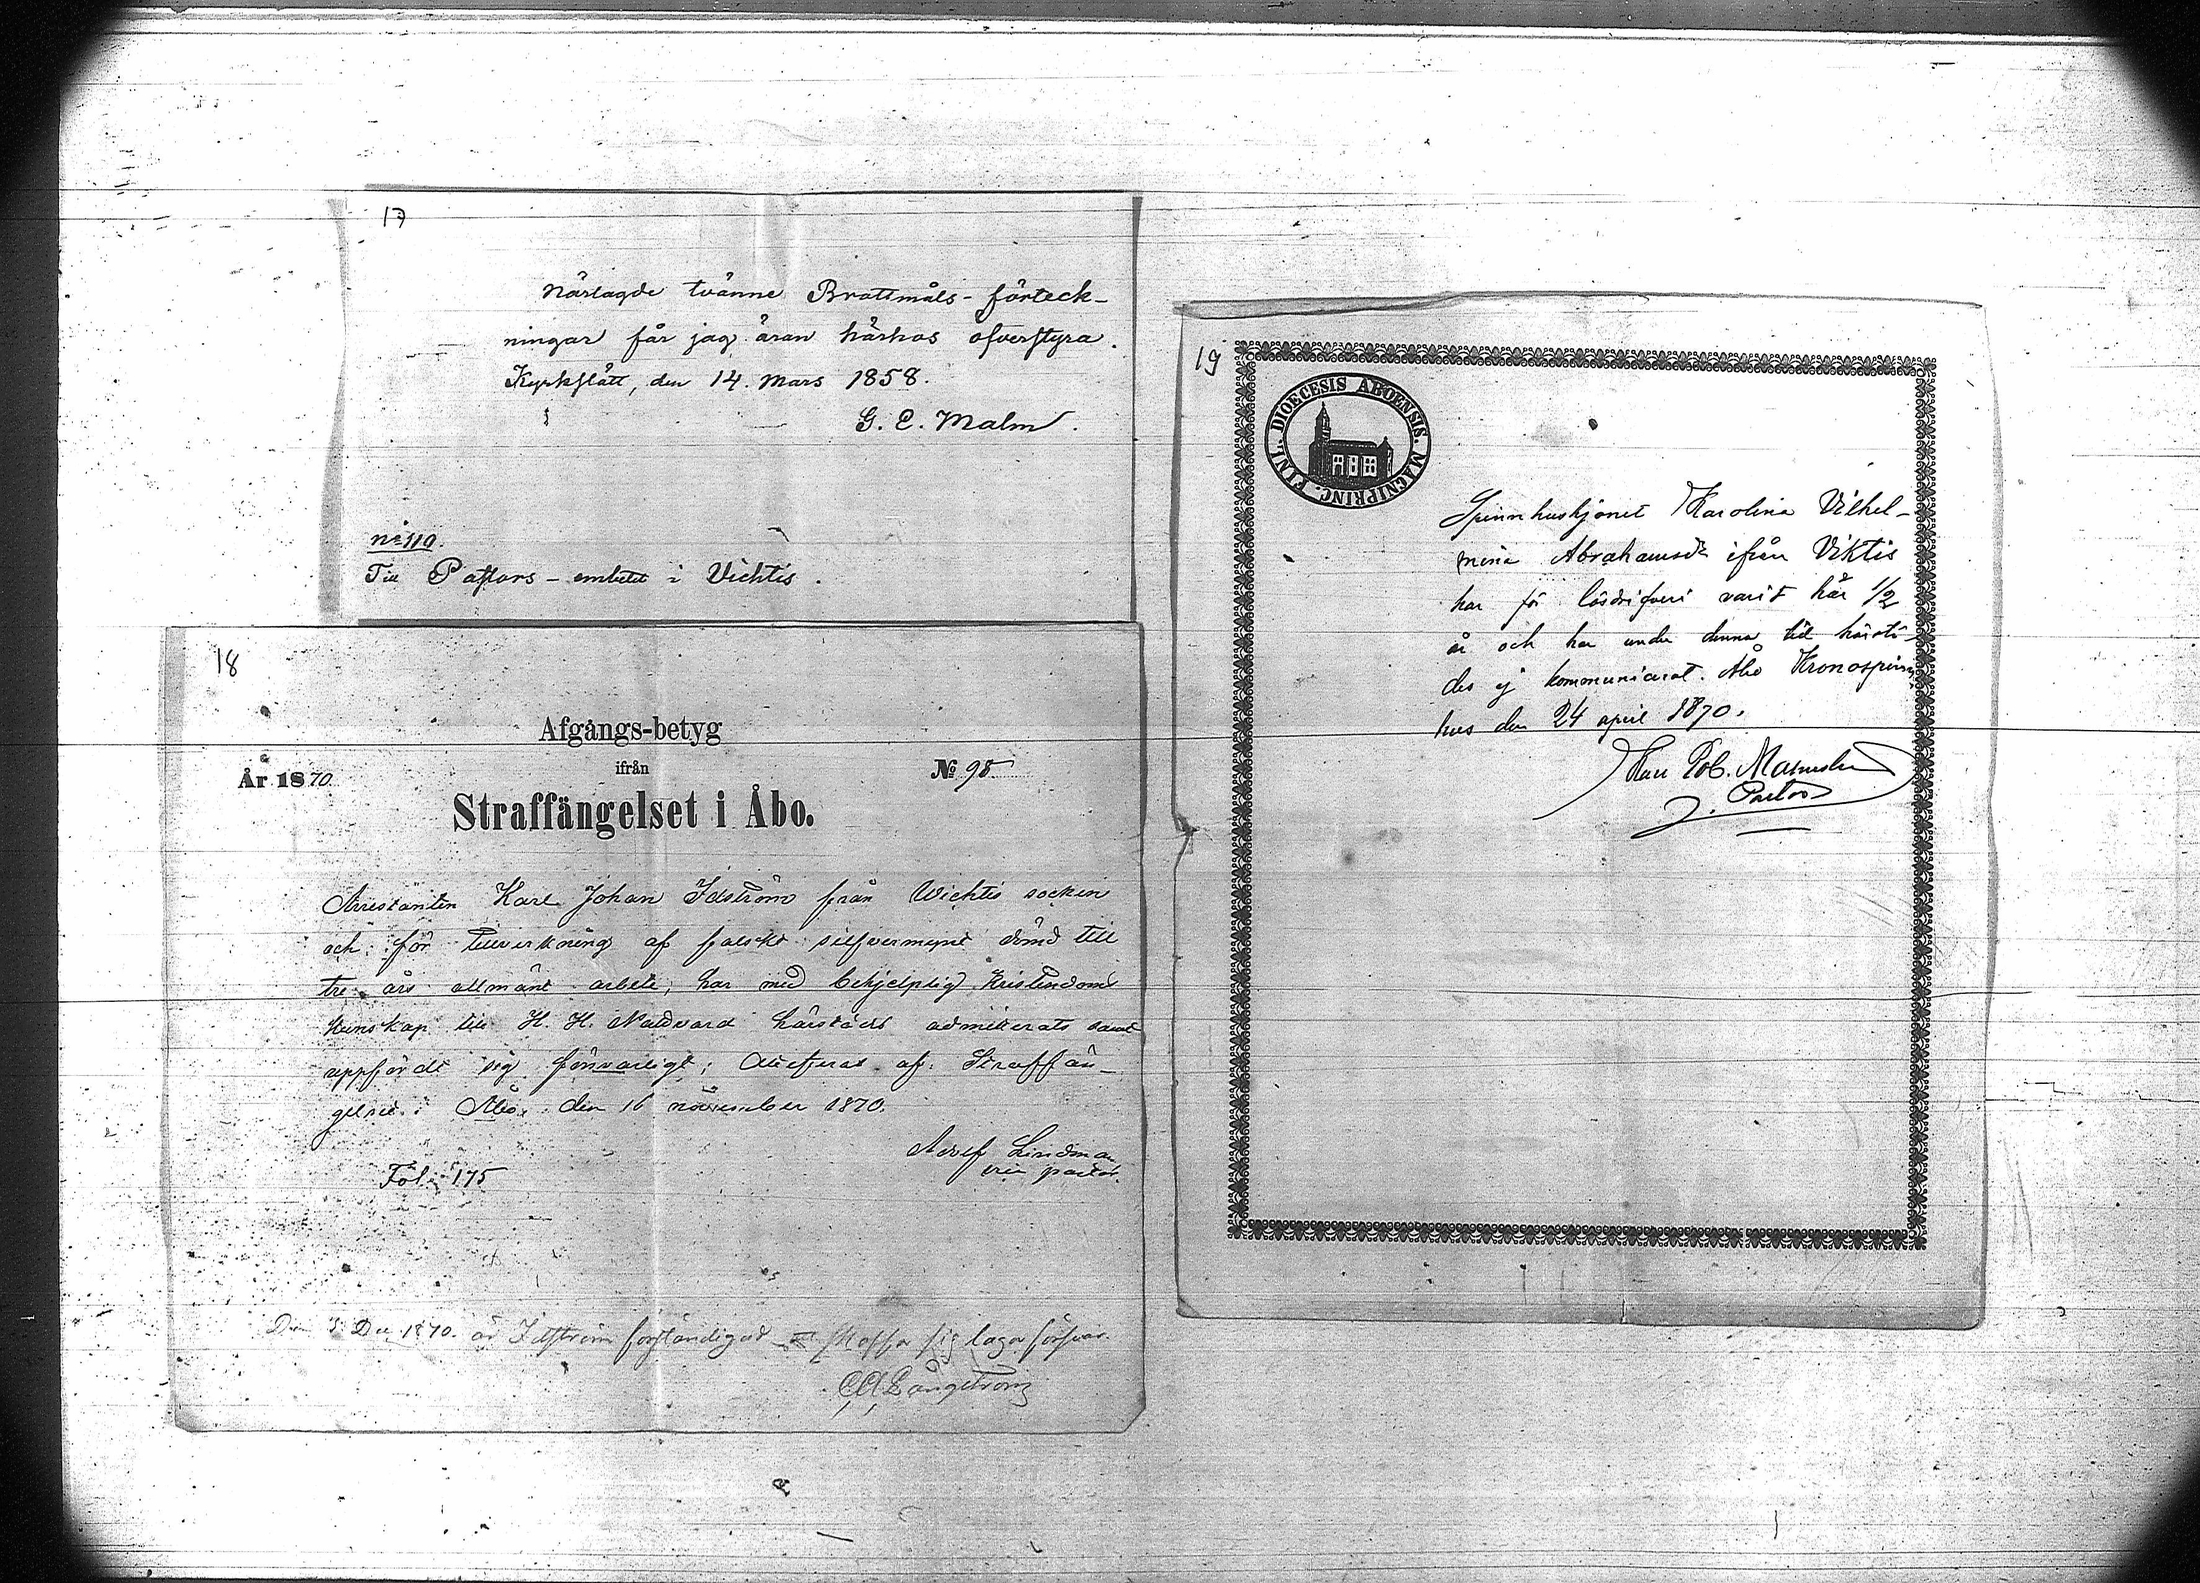 17
Närlagde tvänne Brottmåls-förteck-
ningar får jag äran härhos öfverstyra.
Kyrkslätt, den 14. Mars 1858.
G. E. Malm.
No 110.
Till Pastors-embetet i Vichtis.
18
Afgångs-betyg
ifrån
År 1870
No 98
Straffängelset i Åbo.
Arrestanten Karl Johan Idström från Wichtis socken
och för tillverkning af falskt silfvermynt dömd till
tre års allmänt arbete, har med behjelplig kristendoms
kunskap till H. H. Nattvard härstädes admitterats samt
uppfördt sig försvarligt; Attesteras af Straffän-
gelset i Åbo, den 16 november 1870.
Adolf Lindman
vice pastor.
Fol. 175
Den 3 Dec 1870. är Idström förständigad att skaffa sig laga försvar.
19
DIOECESIS ABOENSIS. MAGNIPRINC. FINL.
Spinnhushjonet Karolina Vilhel-
mina Abrahamsdr ifrån Viktis
har för lösdrifveri varit här 1/2
år och har under denna tid härstä-
des ej kommunicerat. Åbo Kronospinn
hus den 24 april 1870.